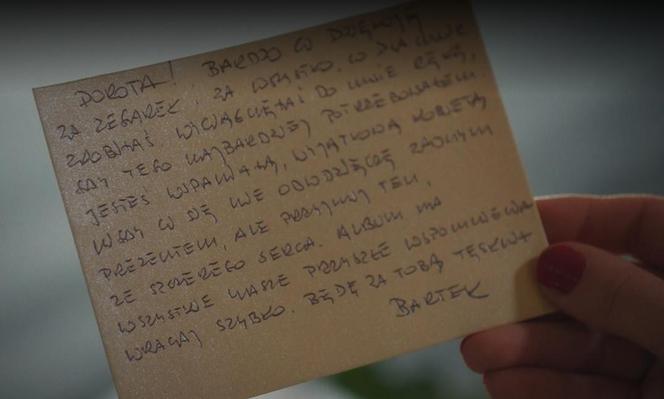 DOROTA! BARDZO CI DZIĘKUJĘ
ZA ZEGAREK, ZA WSZYSTKO, CO DLA MNIE
ZROBIŁAŚ. WYCIĄGNĘŁAŚ DO MNIE RĘKĘ,
GDY TEGO NAJBARDZIEJ POTRZEBOWAŁEM.
JESTEŚ WSPANIAŁĄ, WYJĄTKOWĄ KOBIETĄ
NIGDY CI SIĘ NIE ODWDZIĘCZĘ ŻADNYM
PREZENTEM, ALE PRZYJMIJ TEN,
ZE SZCZEREGO SERCA. ALBUM NA
WSZYSTKIE NASZE PRZYSZŁE WSPOMNIENIA
WRACAJ SZYBKO. BĘDĘ ZA TOBĄ TĘSKNIŁ
BARTEK